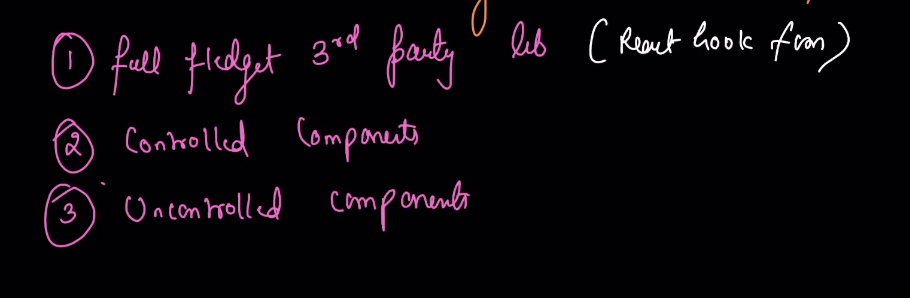 ① full fledget 3rd party lib (React hook form)
② Controlled Components
③ Uncontrolled components